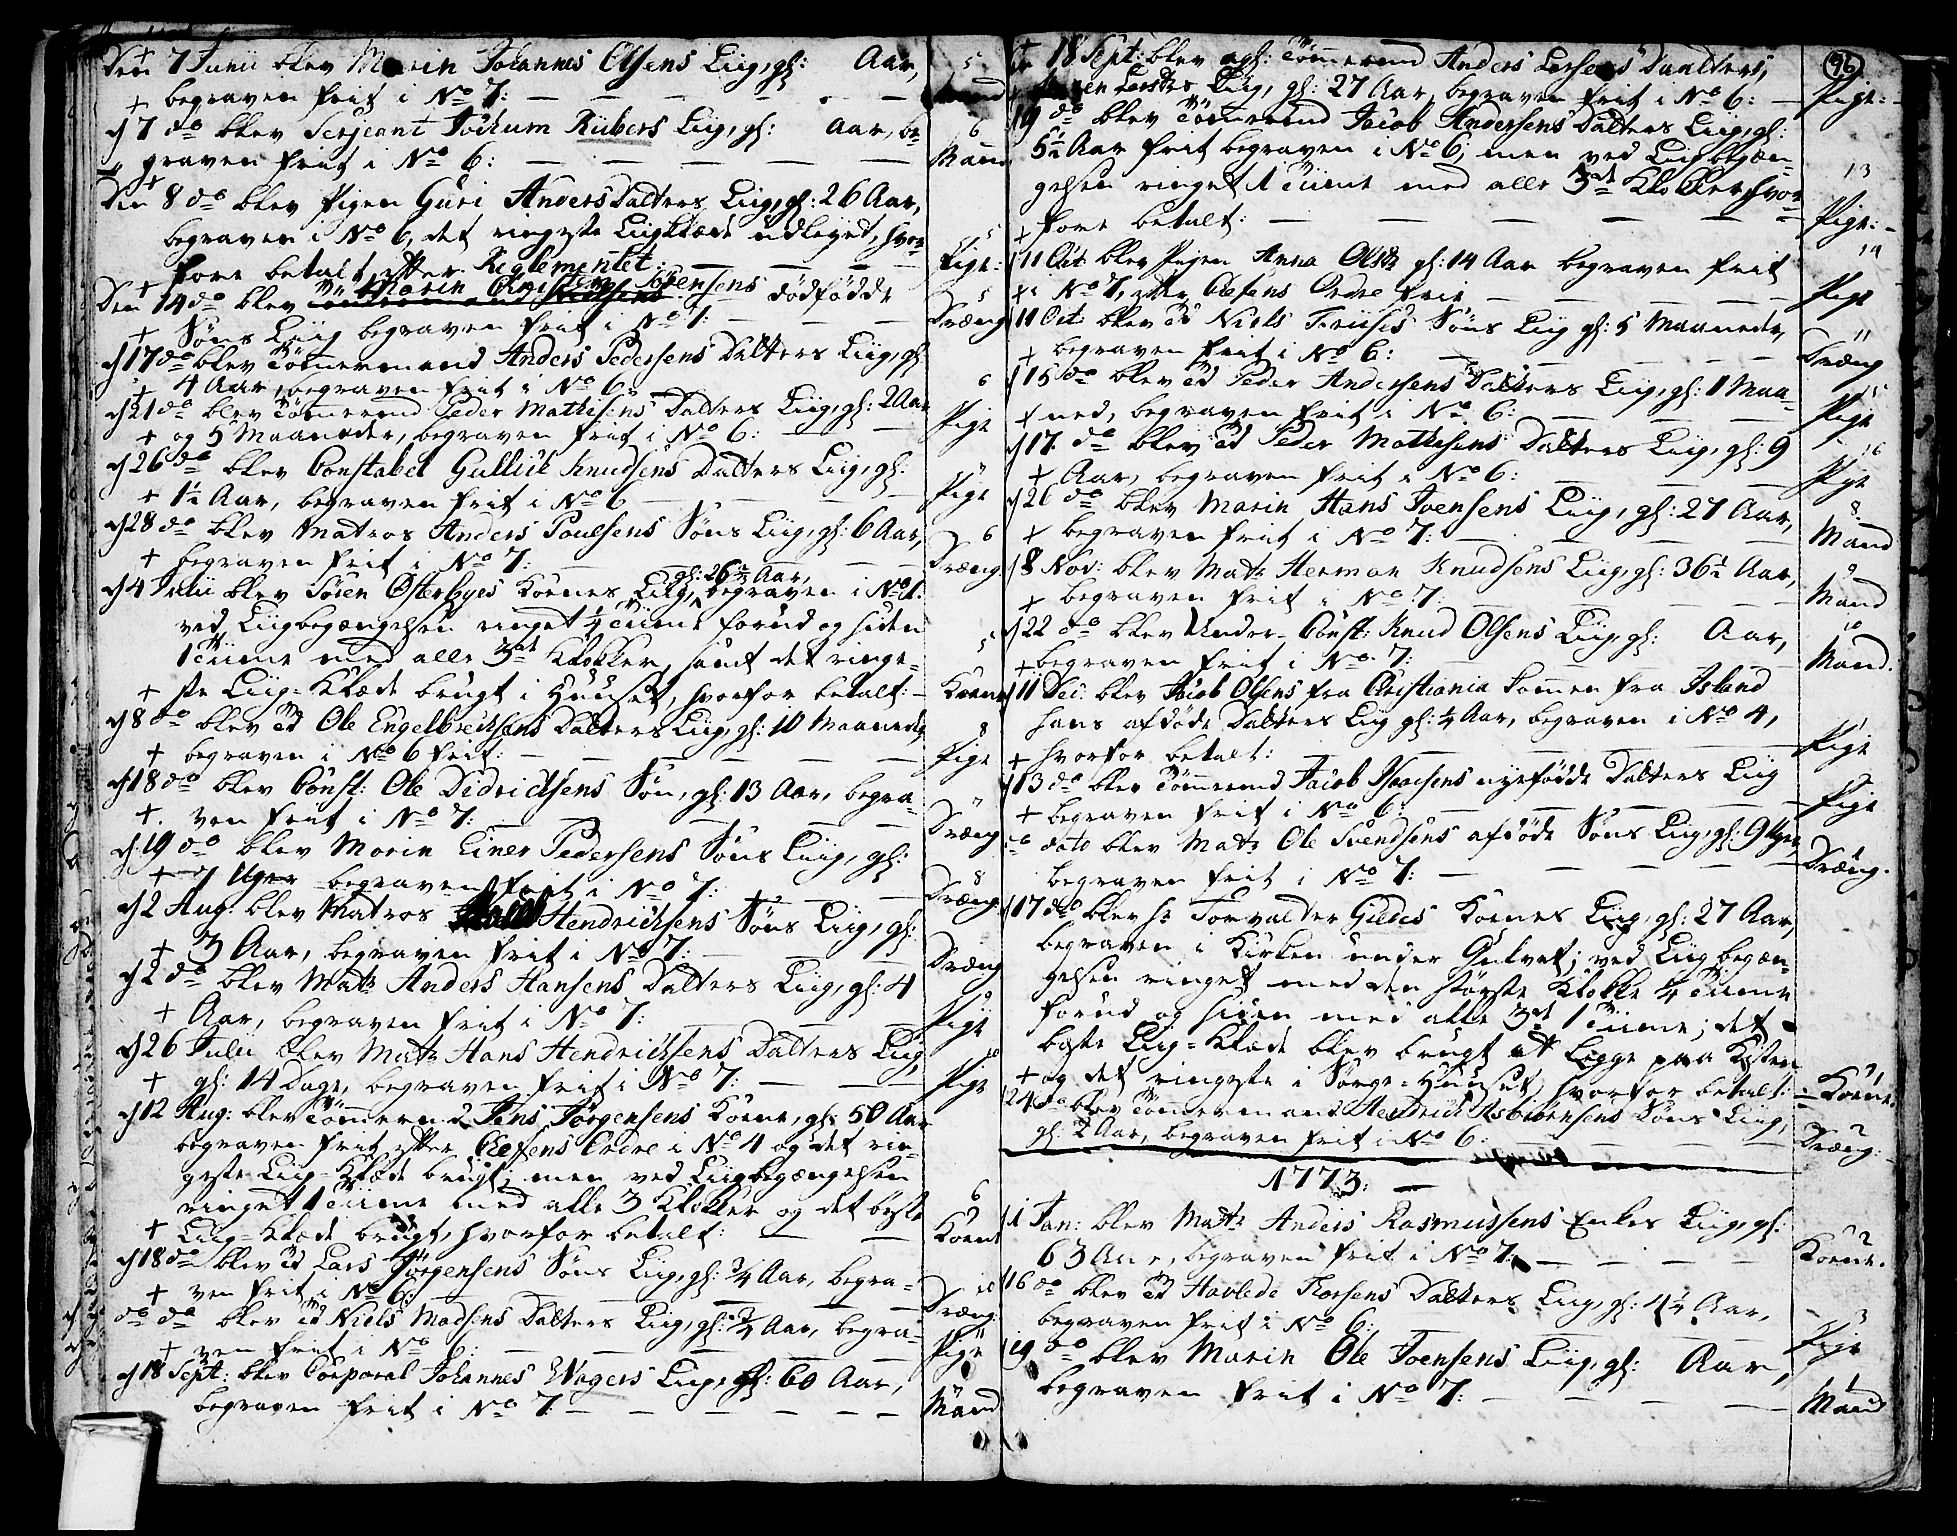 Den 7 Junii blev Marin Johannes Olsens Liig, gl: Aar,
begraven frit i No 7:
5
Mand
d 7 do blev Sergeant Jochum Riibers Liig, gl: Aar, be
graven frit i No 6:
6
Mand
Den 8 do blev Pigen Guri Anders Datters Liig, gl: 26 Aar,
begraven i No 6, det ringeste Liigklæde udleyet, hvor
fore betalt efter Reglementet:
5
Pige:
Marin Christen Sörensens
Den 14 do blev dödfödde
Söns Liig begraven frit i No 7:
5
Dræng
d 17 do blev Tömmermand Anders Pedersens Datters Liig, gl:
4 Aar, begraven frit i No 6:
6
Pige
d 21 do blev Tömmermd Peder Mathisens Datters Liig, gl: 2 Aar
og 5 Maaneder, begraven frit i No 6:
d 26 do blev Constabel Gullich Knudsens Datters Liig, gl:
1½ Aar, begraven frit i No 6
Pige
d 28 do blev Matros Anders Poulsens Söns Liig, gl: 6 Aar,
begraven frit i No 7:
6
Dræng
gl: 26½ Aar,
d 4 Julii blev Sören Österbyes Kones Liig, begraven i No 1.
ved Liigbegængelsen ringet ¼ Time forud og siden
1 Time med alle 3de Klokker, samt det ringe-
ste Liig-Klæde brugt i Huuset, hvorfor betalt:
5
Kone
d 8 do blev Td Ole Engelbrechtsens Datters Liig, gl: 10 Maaneder,
begraven i No 6 frit:
8
Pige
d 18 do blev Const: Ole Didrichsens Sön, gl: 13 Aar, begra-
ven frit i No 7:
Dræng
d 19 do blev Marin Einer Pedersens Söns Liig, gl:
7 Uger begraven frit i No 7:
8
Dræng
d 2 Aug: blev Matros Hendrichsens Söns Liig, gl:
3 Aar, begraven frit i No 7:
Dræng
d 2 do blev Matr Anders Hansens Datters Liig, gl: 4
Aar, begraven frit i No 7:
9
Pige
d 26 Julii blev Matr Hans Hendrichsens Datters Liig,
gl: 14 Dage, begraven frit i No 7:
10
Pige
d 12 Aug: blev Tömmermd Jens Jörgensens Kone, gl: 50 Aar
begraven frit efter Chefens Ordre i No 4 og det rin-
geste Liig-Klæde brugt; men ved Liigbegængelsen
ringet 1 Time med alle 3 Klokker og det beste
Liig-Klæde brugt, hvorfor betalt:
6
Kone
d 18 do blev Td Lars Jörgensens Söns Liig, gl: ¾ Aar, begra-
ven frit i No 6:
10
Dræng
do do blev Td Niels Madsens Datters Liig, gl: ¾ Aar, begra-
ven frit i No 6:
11
Pige
d 18 Sept: blev Corporal Johannes Wagers Liig, gl: 60 Aar,
begraven frit i No 7
Mand
96
18 Sept: blev Tömmermd Anders Larsens Daatters,
Liig, gl: 27 Aar, begraven frit i No 6:
Pige:
19 do blev Tömmermd Jacob Andersens Datters Liig, gl:
5½ Aar frit begraven i No 6; men ved Liigbegæn-
gelsen ringet 1 Time med alle 3de Klokker, hvor-
fore betalt:
13
Pige:
11 Oct: blev Pigen Anna Olsdr gl: 14 Aar begraven frit
i No 7, efter Chefens Ordre frit
14
Pige
11 Oct: blev Td Niels Friises Söns Liig gl: 5 Maaneder,
begraven frit i No 6:
11
Dræng
d 15 do blev Td Peder Andersens Datters Liig, gl: 1 Maa-
ned, begraven frit i No 6:
15
Pige
d 17. do blev Td Peder Mathisens Datters Liig, gl: 9
Aar, begraven frit i No 6:
16
Pige
d 26 do blev Marin Hans Ivensens Liig, gl: 27 Aar,
begraven frit i No 7:
8
Mand
d 8 Nov: blev Matr Herman Knudsens Liig, gl: 36½ Aar,
begraven frit i No 7:
9
Mand
d 22 do blev Under-Const: Knud Olsens Liig, gl: Aar,
begraven frit i No 7:
10
Mand.
d 11 Dec: blev Jacob Olsens fra Christiania kommen fra Island
hans afdöde Datters Liig gl: ¼ Aar, begraven i No 4,
hvorfor betalt:
1
Pige
d 13 do blev Tömmermd Jacob Isaacsens nyefödde Datters Liig
begraven frit i No 6:
Pige
do dato blev Matr Ole Svendsens afdöde Söns Liig, gl: 9 Uger,
begraven frit i No 7:
1
Dræng.
17 do blev Hr Torvalder Gieldes Kones Liig, gl: 27 Aar,
begraven i Kirken under Gulvet; ved Liigbegæn-
gelsen ringet med den störste Klokke ¼ Time
forud og siden med alle 3de 1 Time; det
beste Liig-Klæde blev brugt at legge paa Kisten
og det ringeste i Sörge-Huuset, hvorfor betalt:
1
Kone.
24 do blev Tömmermand Hendrich Asbiörnsens Söns Liig,
gl: 2 Aar, begraven frit i No 6:
2
Dræng:
1773:
11 Jan: blev Matr Anders Rasmussens Enkes Liig, gl:
63 Aar, begraven frit i No 7:
2
Kone.
16 do blev Td Havlede Torsens Datters Liig, gl: 4½ Aar,
begraven frit i No 6:
3
Pige
19 do blev Marin Ole Ivensens Liig, gl: Aar,
begraven frit i No 7:
1
Mand